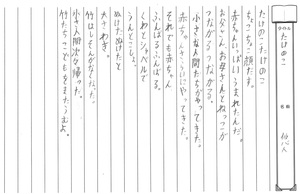 タイトル
たけのこ
名前
たけのこ たけのこ
ちっこちこ顔だす。
赤ちゃんいっぱいうまれたんだ。
お父さん、お母さんとねっこが
つながるつながる。
小さな人間たちがやってきた。
赤ちゃん
にやってきた。
それでも赤ちゃん
ふんばるふんばる。
くわとシャベルで
うんとこしょ。
ぬけたぬけたと
大さわぎ。
竹はしそんがなくなった。
小さき人間次々帰った。
竹たちこどもをまたうむよ。